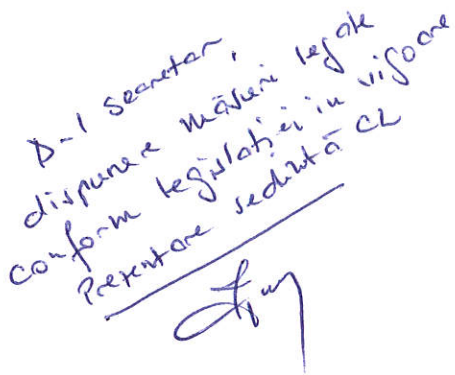 D-l secretar,
dispunere măsuri legale
conform legislației în vigoare
Prezentare ședință CL